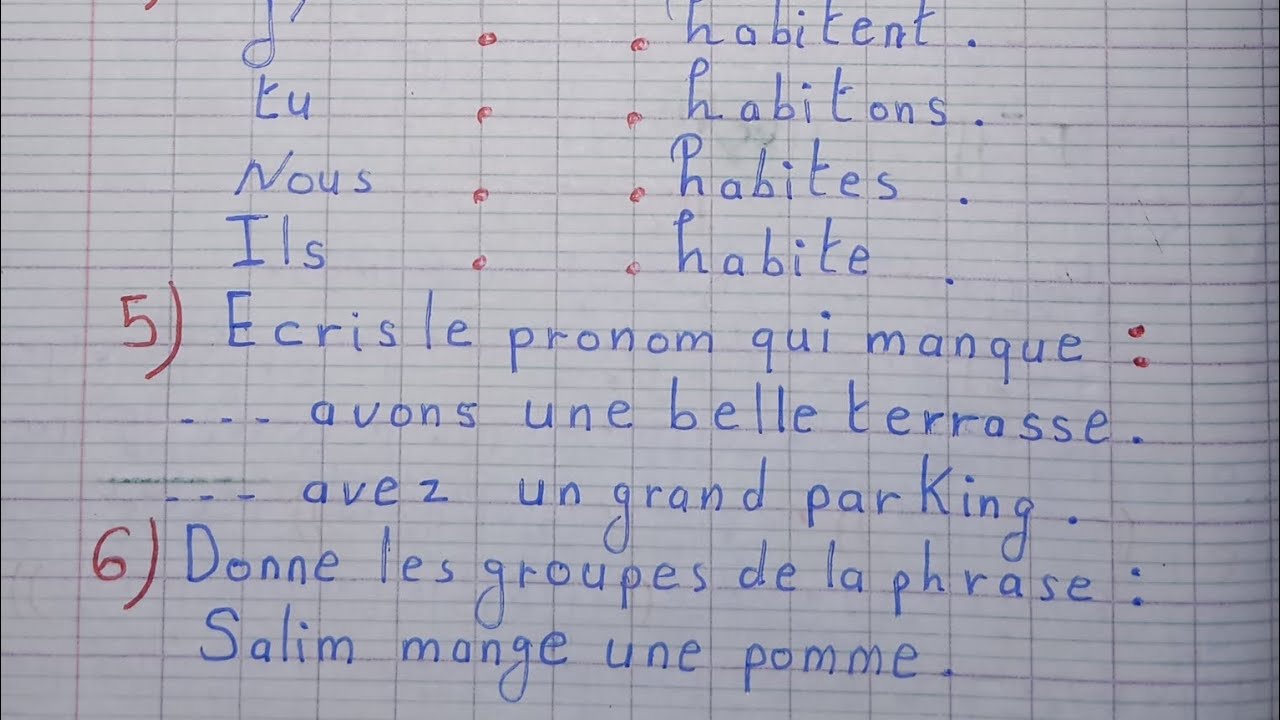 j' . . habitent .
tu . . habitons .
Nous . . habites .
Ils . . habite .
5) Ecris le pronom qui manque :
... avons une belle terrasse .
... avez un grand parking .
6) Donne les groupes de la phrase :
Salim mange une pomme .